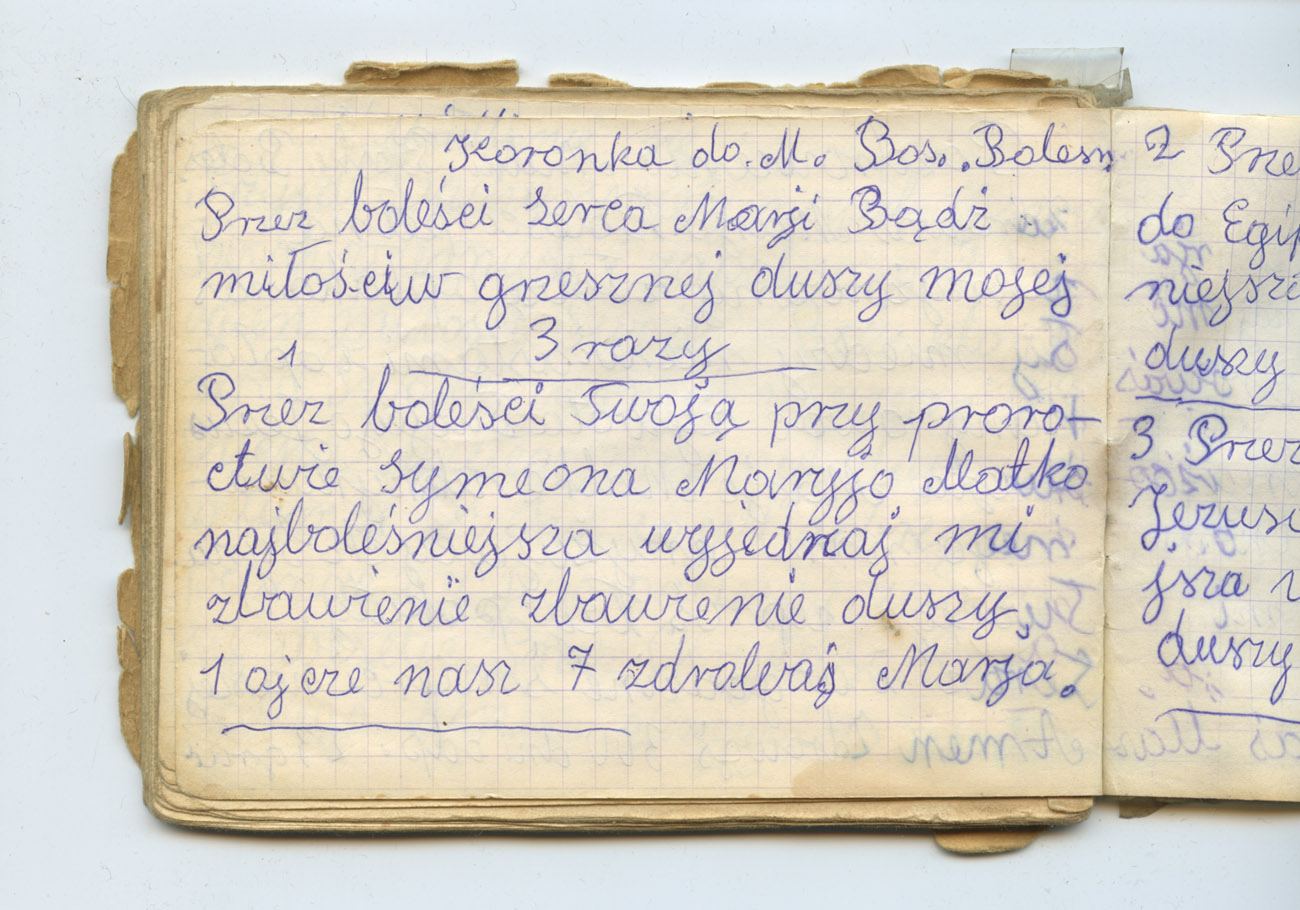 Koronka do. M. Bos. Bolesn.
Przez boleści Serca Maryi Bądź
miłościw grzesznej duszy mojej
3 razy
1
Przez boleści Twoją przy proro-
ctwie Symeona Maryjo Matko
najboleśniejsza wyjednaj mi
zbawienie zbawienie duszy
1 ojcze nasz 7 zdrowaś Marja.
2 Prze
do Egip
niejsz
duszy
3 Przez
Jeruz
jsza
duszy